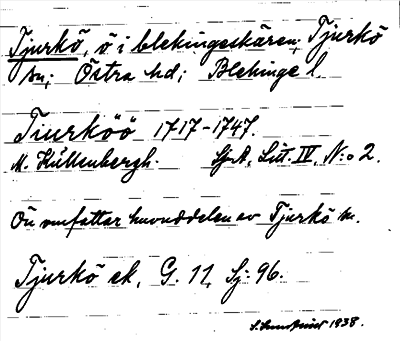 Tjurkö, ö i blekingeskären, Tjurkö
sn; Östra hd; Blekinge l.
Tiurköö 1717-1747.
M. Küllenbergh. SjA, Litt. IV, N:o 2.
Ön omfattar huvuddelen av Tjurkö sn.
Tjurkö ek, G. 11, Sj: 96.
1938.